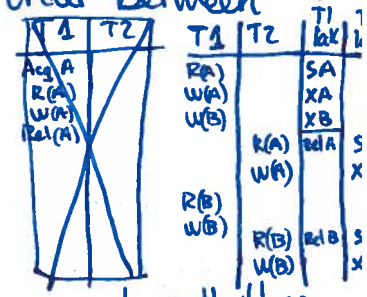 order between
T1 T2
Acq A
R(A)
W(A)
Rel(A)
T1 T2 T1 lock
R(A) SA
W(A) XA
W(B) XB
R(A) Rel A S
W(A) X
R(B)
W(B)
R(B) Rel B S
W(B) X